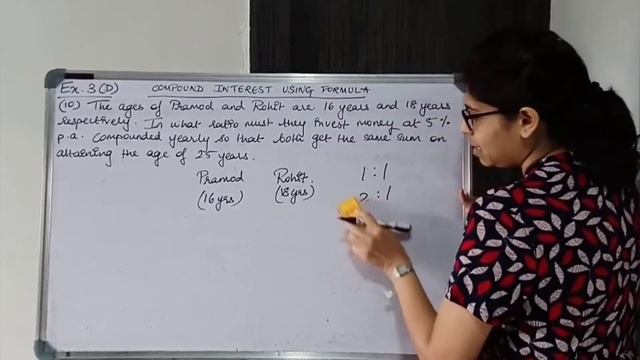 Ex. 3(D) COMPOUND INTEREST USING FORMULA
(10) The ages of Pramod and Rohit are 16 years and 18 years
respectively. In what ratio must they invest money at 5%
p.a. Compounded yearly so that both get the same sum on
attaining the age of 25 years.
Pramod Rohit. 1:1
(16 yrs) (18 yrs) 2:1